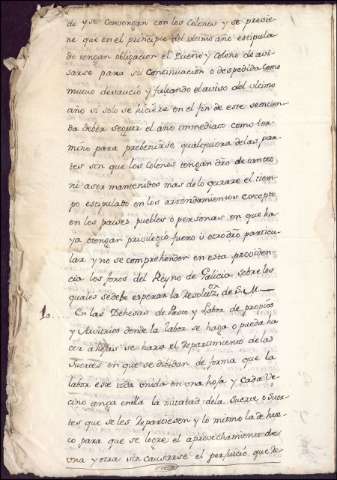 de y se convengan con los Colonos y se previe
ne que en el principio del ultimo año estipula
do tengan obligacion el Dueño y Colono de avi
sarse para su continuacion o despedida como
mutuo desaucio y faltando el aviso del ultimo
año si solo se hiciere en el fin de este se entien
da deber seguir el año immediato como ter
mino para prebenirse qualquiera de las par
tes sin que los Colonos tengan dro de
ni a ser mantenidos mas de lo que durare el tiem
po estipulado en los arrendamientos excepto
en los paises pueblos o personas en que ha
ya o tengan privilegio fuero u otro dro particu
lar y no se comprehenden en esta providen
cia los foros del Reyno de Galicia sobre los
quales se debe esperar la Resoluz.n de S. M.
En las Dehesas de Pasto y Labor de propios
y Arvitrios donde la labor se haga o pueda ha
cer a hojas se hara el Repartimiento de las
Suertes en que se dibidan de forma que la
labor este toda unida en una hoja y cada Ve
cino tenga en ella la mitad de la Suerte o Suer
tes que se les repartiesen y lo mismo la de hue
co para que se logre el aprovechamiento de
una y otra sin causarse el perjuicio que de